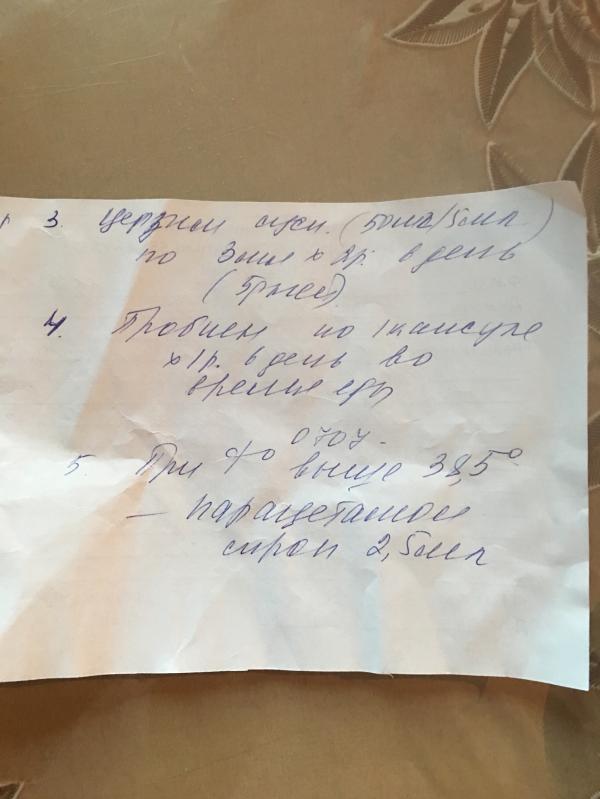 3. Церзил сусп. (50мл/5мл)
по 3мл х 2р. в день
(5дней).
4. Пробиен по 1 капсуле
х 1р. в день во
время еды
5. При t° выше 38,5°
- парацетамол
сироп 2,5мл